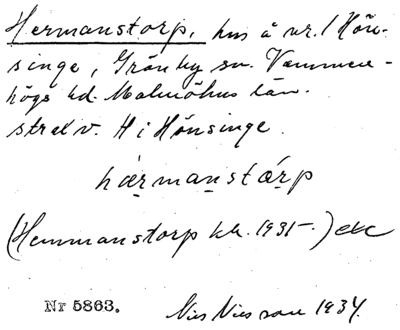 Hermanstorp, hus å nr. 1 Hön-
singe, Grönby sn. Vemmen-
högs hd. Malmöhus län.
strax v. H i Hönsinge.
hærmanstárp
(Hemmanstorp kk. 1931-.) etc
Nr 5863.
Nils Nilsson 1934.